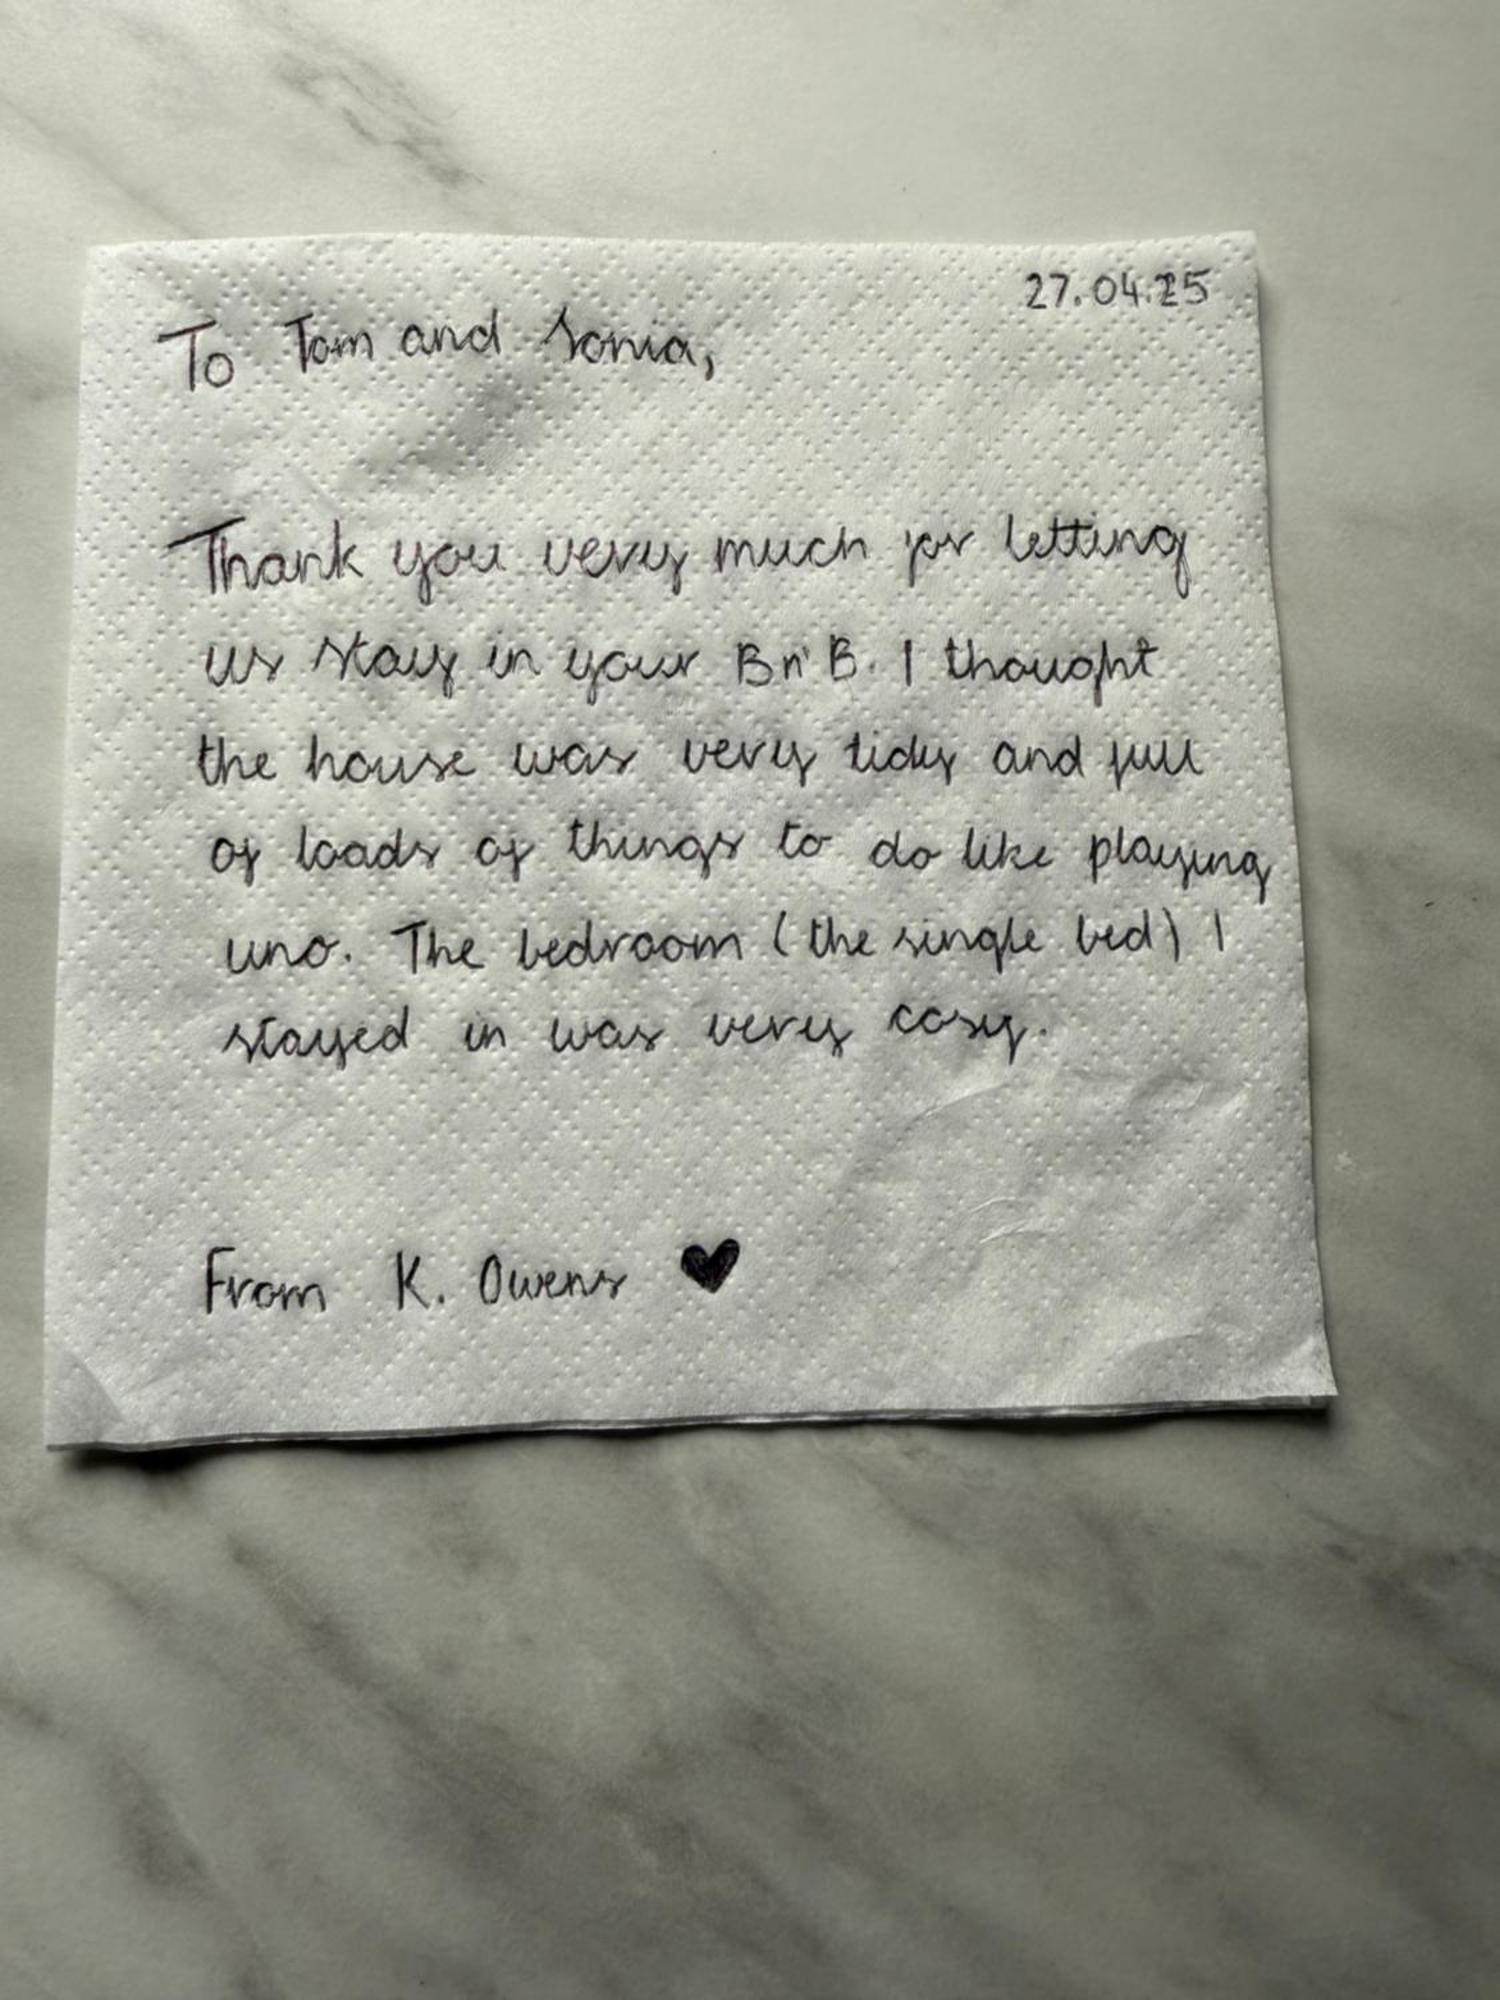 27.04.25
To Tom and Sonia,
Thank you very much for letting
us stay in your Bn'B. I thought
the house was very tidy and full
of loads of things to do like playing
uno. The bedroom (the single bed) I
stayed in was very cosy.
From K. Owens ♥